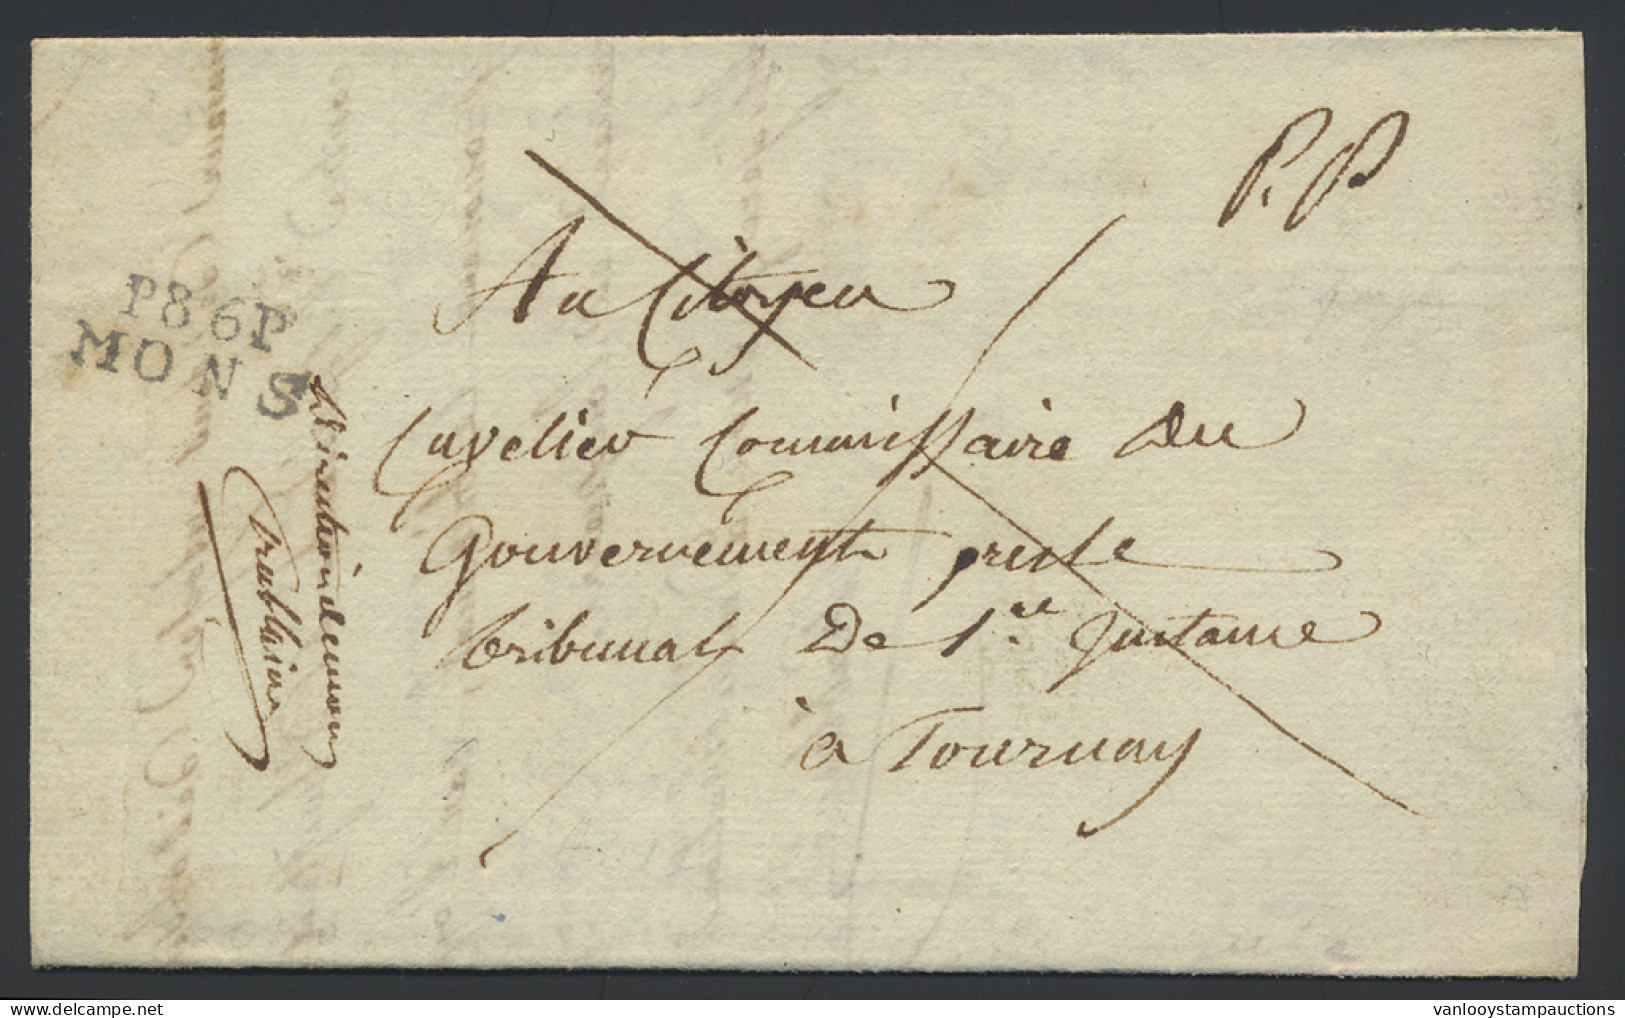 P.P.
P86P
MONS
Au Citoyen
Cuvelier Commissaire du
Gouvernement pres le
tribunal de 1.re Instance
à Tournay
vanlooystampauctions